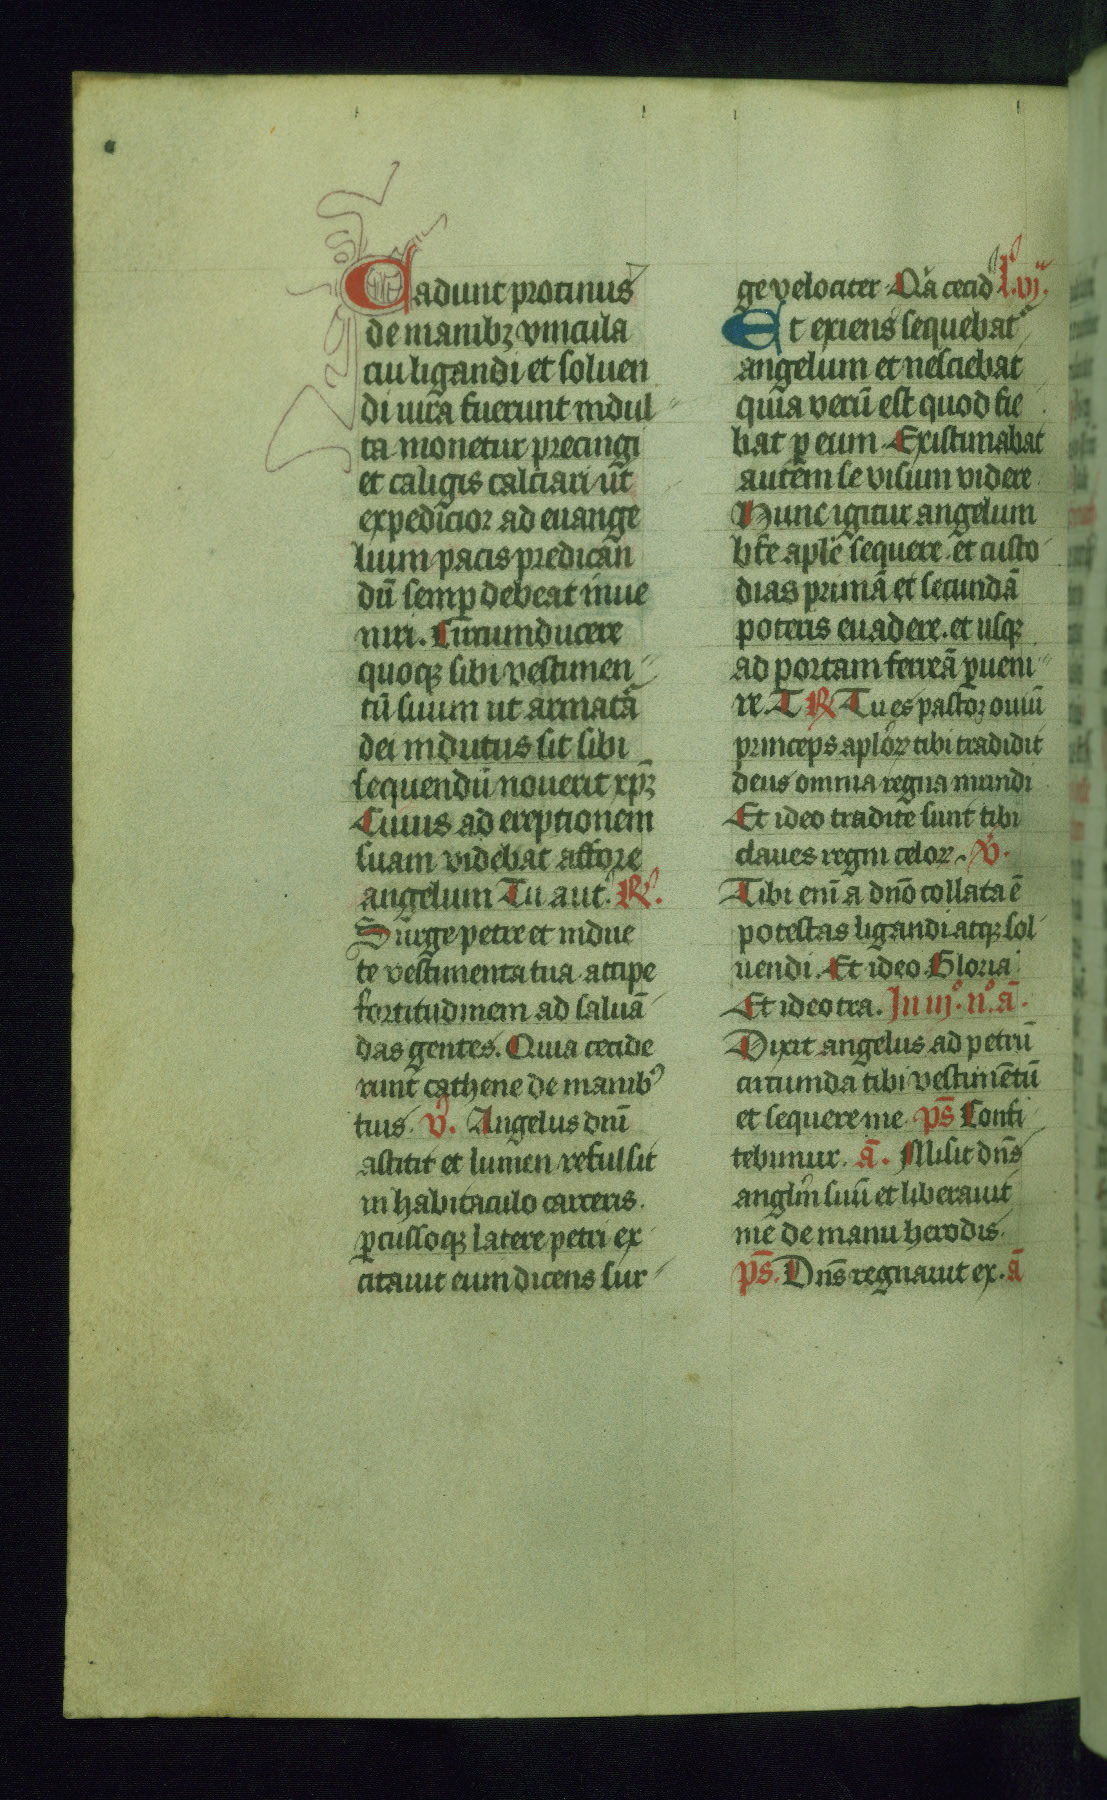 Cadunt protinus
de manibꝫ vincula
cui ligandi et soluen
di iura fuerunt indul
ta monetur precingi
et caligis calciari ut
expedicior ad euange
lium pacis predican
dū semꝑ debeat inue
niri. Circumducere
quoqꝫ sibi vestimen
tū suum ut armatā
dei indutus sit sibi
sequendū nouerit xp̄ꝫ
Cuius ad ereptionem
suam videbat affore
angelum Tu aut. R̄.
Surge petre et indue
te vestimenta tua accipe
fortitudinem ad saluā
das gentes. Quia cecide
runt cathene de manibꝰ
tuis. v̄. Angelus dn̄i
astitit et lumen refulsit
in habitaculo carceris.
ꝑcussoqꝫ latere petri ex
citauit eum dicens sur
ge velociter. Qͣa cecid̄ L̄. vi.
Et exiens sequebatᷣ
angelum et nesciebat
quia verū est quod fie
bat ꝑ eum. Existimabat
autem se visum videre.
Hunc igitur angelum
bt̄e aplē sequere. et custo
dias primā et secundā
poteris euadere. et usqꝫ
ad portam ferreā ꝑueni
re. T R̄ Tu es pastor ouiū
princeps aplōꝝ tibi tradidit
deus omnia regna mundi
Et ideo tradite sunt tibi
claues regni celoꝝ. v̄.
Tibi eni̅ a dn̄o collata ē
potestas ligandi atqꝫ sol
uendi. Et ideo. Gloria
Et ideo tra. In iij.º n.º ā.
Dixit angelus ad petrū
circumda tibi vestimētū
et sequere me. p̄s Confi
tebimur. ā. Misit dn̄s
angl̄m suū et liberauit
me de manu herodis.
p̄s. Dn̄s regnauit ex. ā